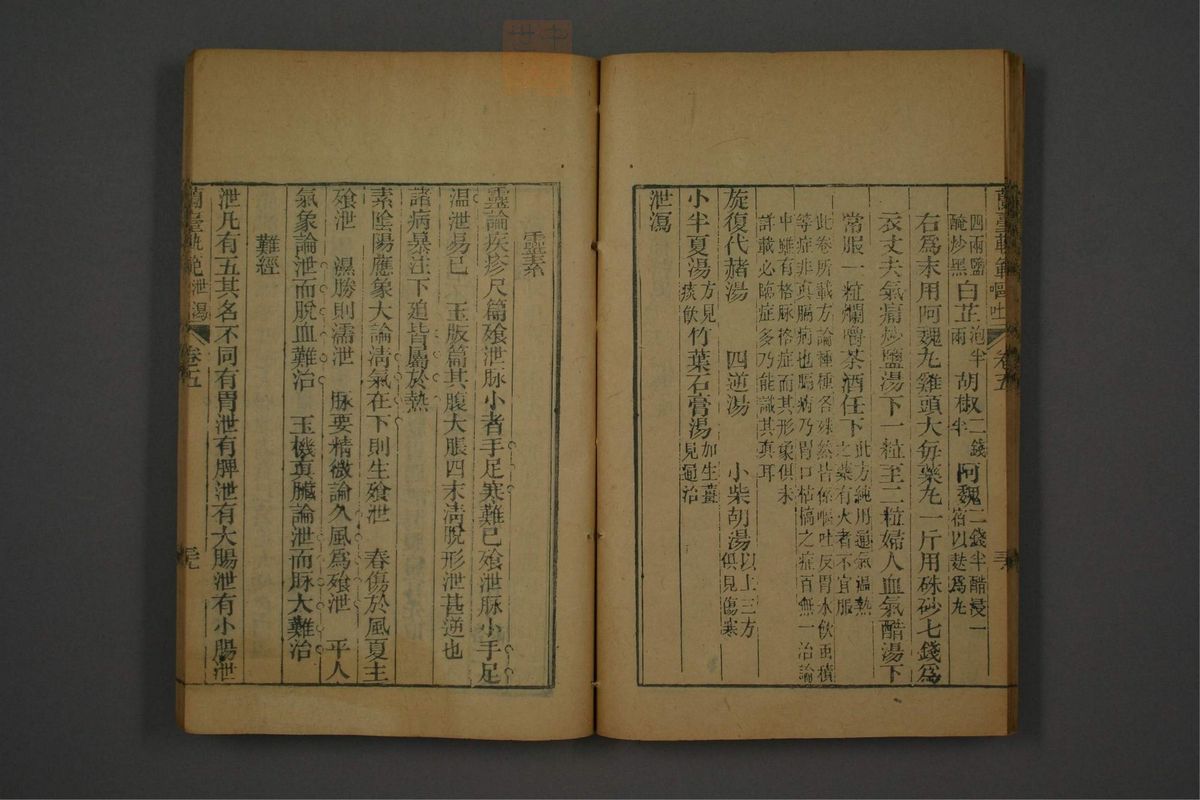 蘭臺軌範 嘔吐 卷五
四兩鹽醃炒黑 白芷泡半兩 胡椒二錢半 阿魏二錢半醋浸一宿以麪爲丸
右爲末用阿魏丸雞頭大每藥丸一斤用硃砂七錢爲
衣丈夫氣痛炒鹽湯下一粒至二粒婦人血氣醋湯下
常服一粒爛嚼茶酒任下此方純用通氣溫熱之藥有火者不宜服
此卷所載方論種種各殊然皆係嘔吐反胃水飲蟲積
等症非真膈病也膈病乃胃口枯槁之症百無一治論
中雖有格脈格症而其形象俱未
詳載必臨症多乃能識其真耳
旋復代赭湯 四逆湯 小柴胡湯以上三方俱見傷寒
小半夏湯方見痰飲 竹葉石膏湯加生薑見通治
泄瀉
靈素
靈論疾疹尺篇飱泄脈小者手足寒難已飱泄脈小手足
溫泄易已 玉版篇其腹大脹四末淸脫形泄甚逆也
諸病暴注下迫皆屬於熱
素陰陽應象大論淸氣在下則生飱泄 春傷於風夏生
飱泄 濕勝則濡泄 脈要精微論久風爲飱泄 平人
氣象論泄而脫血難治 玉機真臟論泄而脈大難治
難經
泄凡有五其名不同有胃泄有脾泄有大腸泄有小腸泄
蘭臺軌範 泄瀉 卷五